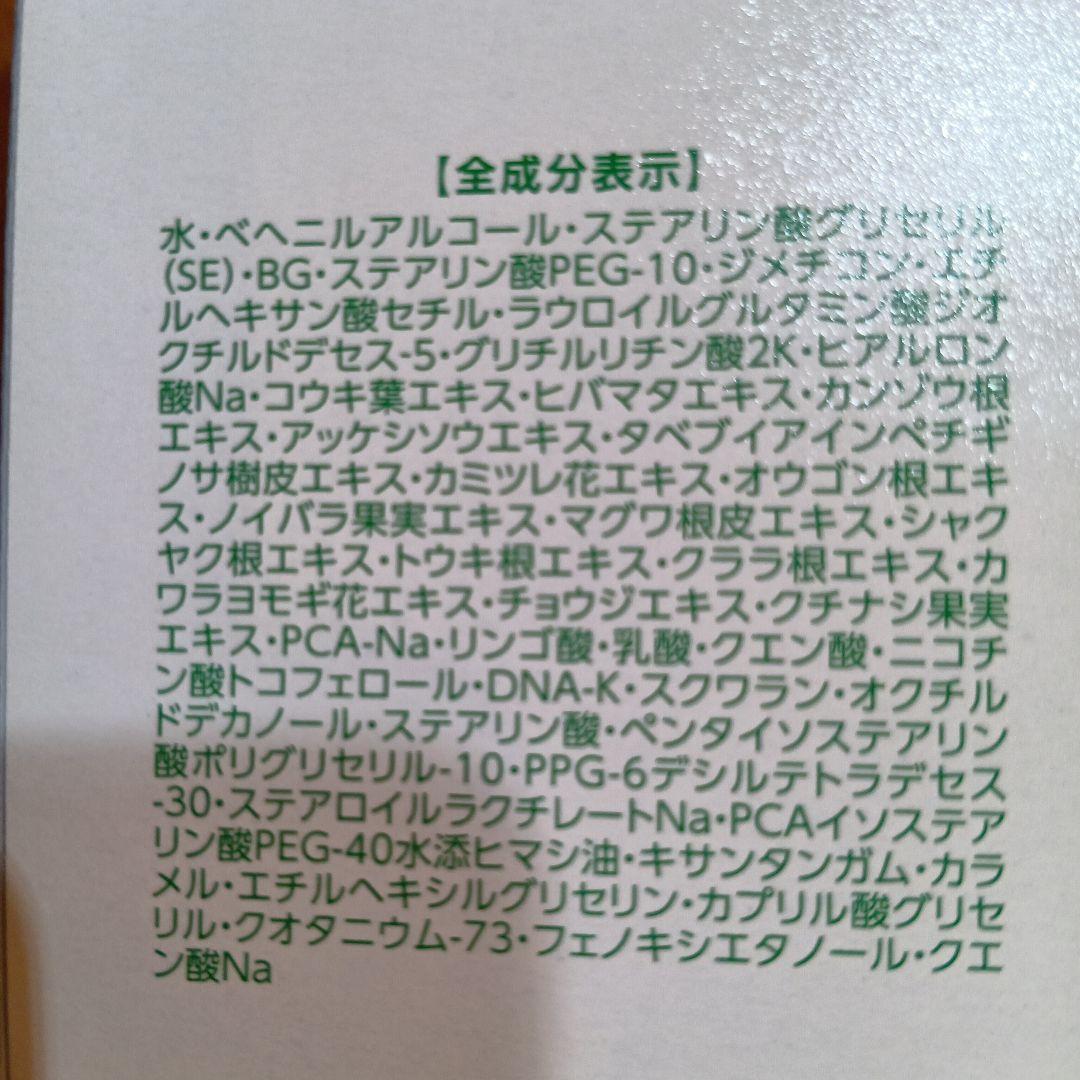 【全成分表示】
水・ベヘニルアルコール・ステアリン酸グリセリル
(SE)・BG・ステアリン酸PEG-10・ジメチコン・エチ
ルヘキサン酸セチル・ラウロイルグルタミン酸ジオ
クチルドデセス-5・グリチルリチン酸2K・ヒアルロン
酸Na・コウキ葉エキス・ヒバマタエキス・カンゾウ根
エキス・アッケシソウエキス・タベブイアインペチギ
ノサ樹皮エキス・カミツレ花エキス・オウゴン根エキ
ス・ノイバラ果実エキス・マグワ根皮エキス・シャク
ヤク根エキス・トウキ根エキス・クララ根エキス・カ
ワラヨモギ花エキス・チョウジエキス・クチナシ果実
エキス・PCA-Na・リンゴ酸・乳酸・クエン酸・ニコチ
ン酸トコフェロール・DNA-K・スクワラン・オクチル
ドデカノール・ステアリン酸・ペンタイソステアリン
酸ポリグリセリル-10・PPG-6デシルテトラデセス
-30・ステアロイルラクチレートNa・PCAイソステア
リン酸PEG-40水添ヒマシ油・キサンタンガム・カラ
メル・エチルヘキシルグリセリン・カプリル酸グリセ
リル・クオタニウム-73・フェノキシエタノール・クエ
ン酸Na